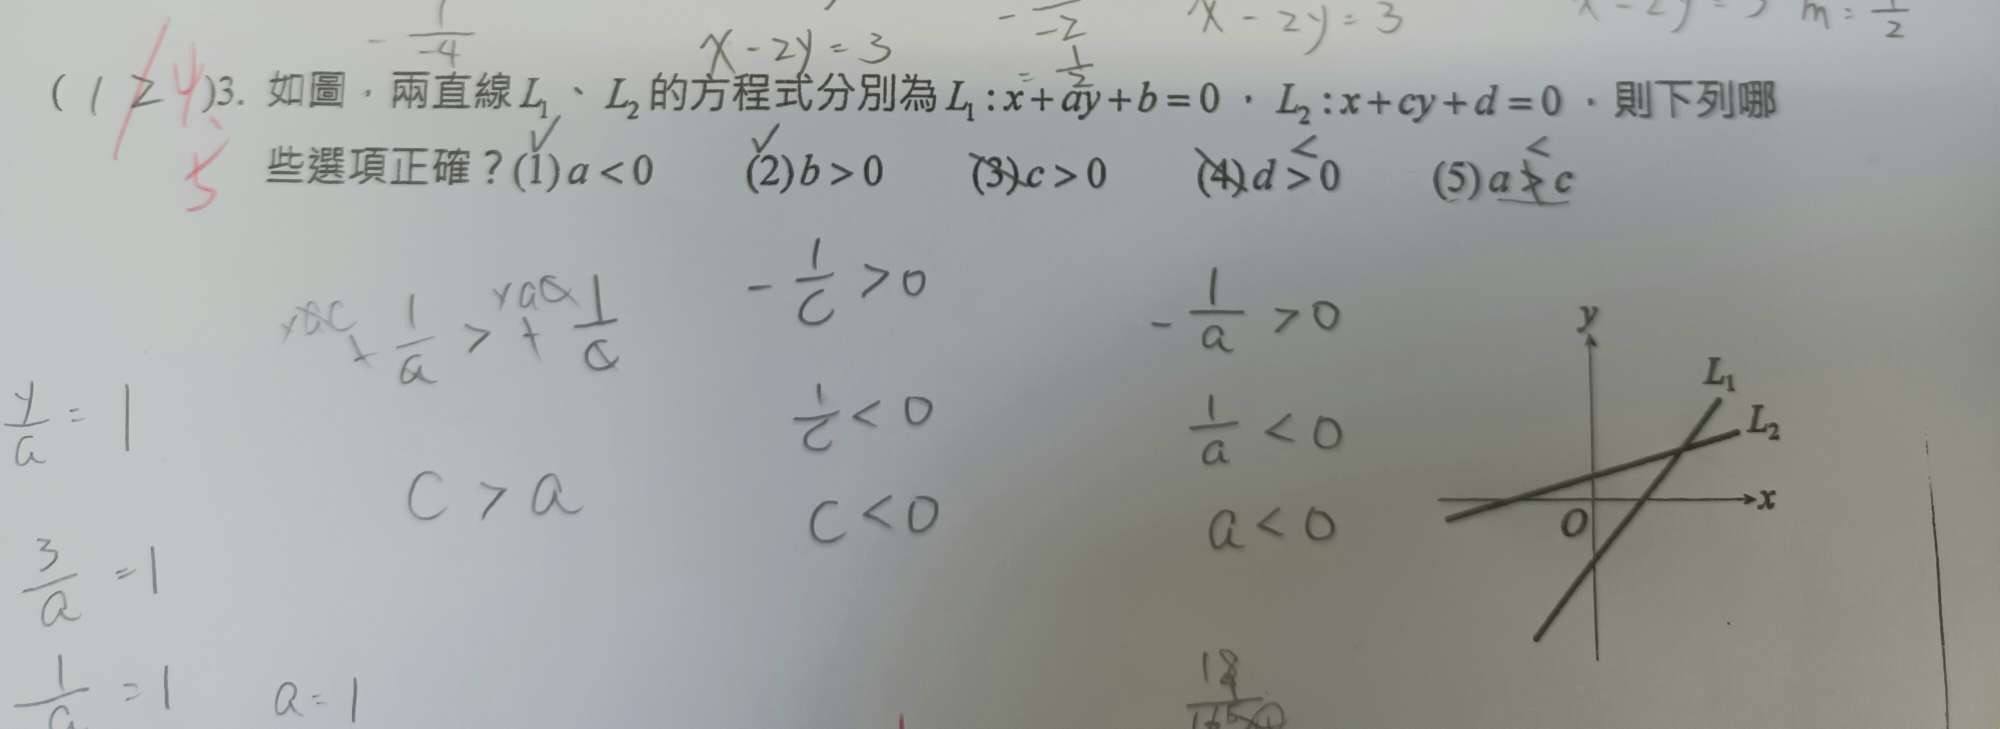 -1/-4
-2
x-2y=3
m=1/2
x-2y=3
=1/2
(124)3. 如圖，兩直線L₁、L₂的方程式分別為L₁:x+ay+b=0，L₂:x+cy+d=0，則下列哪
5
些選項正確？(1)a<0 (2)b>0 (3)c>0 (4)d>0 (5)a>c
< <
-1/c>0
-1/a>0
1/c<0
1/a<0
c>a
c<0
a<0
y/a=1
3/a=1
1/a=1
a=1
y
L₁
L₂
x
O